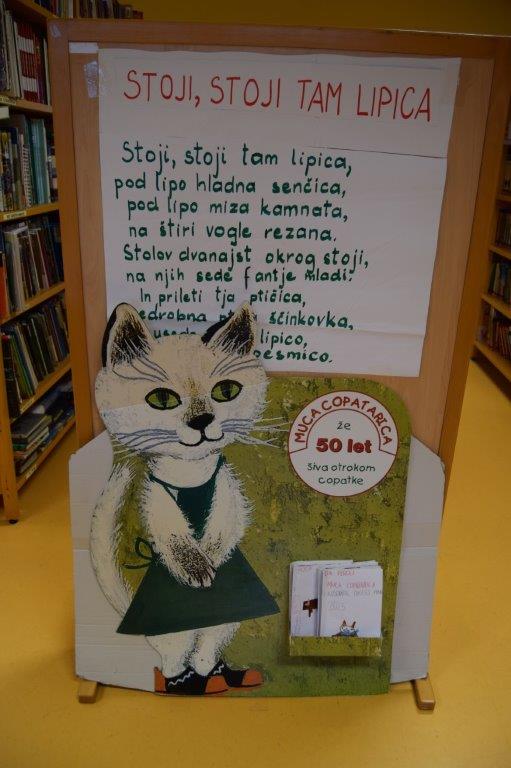 STOJI, STOJI TAM LIPICA
Stoji, stoji tam lipica,
pod lipo hladna senčica,
pod lipo miza kamnata,
na štiri vogle rezana.
Stolov dvanajst okrog stoji,
na njih sede fantje mladi.
In prileti tja ptičica,
ščinkovka,
lipico,
pesmico.
MUCA COPATARICA
že
50 let
šiva otrokom
copatke
MUCA COPATARICA